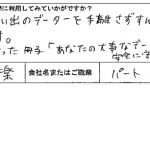 際に利用してみていかがですか？
い出のデーターを手離さずすん
す。
った 冊子「あなたの大事なデー
楽
会社名またはご職業
パート